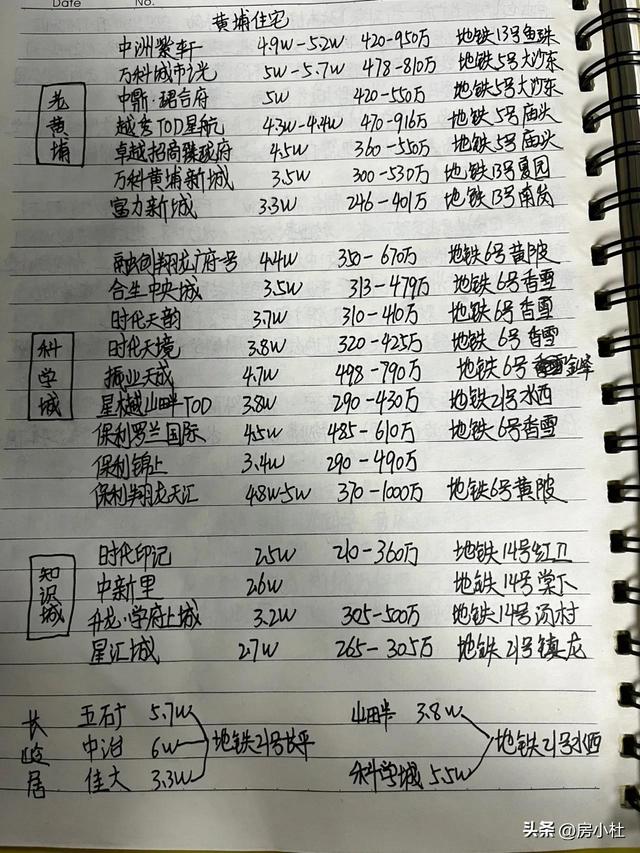 Date No.
黄埔住宅
老黄埔
中洲紫轩 4.9W-5.2W 420-950万 地铁13号鱼珠
万科城市之光 5W-5.7W 478-810万 地铁5号大沙东
中鼎·珺合府 5W 420-550万 地铁5号大沙东
越秀TOD星航 4.3W-4.4W 470-916万 地铁5号庙头
卓越招商臻珑府 4.5W 360-550万 地铁5号庙头
万科黄埔新城 3.5W 300-530万 地铁13号夏园
富力新城 3.3W 246-401万 地铁13号南岗
科学城
融创翔龙广府一号 4.4W 350-670万 地铁6号黄陂
合生中央城 3.5W 313-479万 地铁6号香雪
时代天韵 3.7W 310-410万 地铁6号香雪
时代天境 3.8W 320-425万 地铁6号香雪
振业天成 4.7W 498-790万 地铁6号金峰
星樾山畔TOD 3.8W 290-430万 地铁21号水西
保利罗兰国际 4.5W 485-610万 地铁6号香雪
保利锦上 3.4W 290-490万
保利翔龙天汇 4.8W-5W 370-1000万 地铁6号黄陂
知识城
时代印记 2.5W 210-360万 地铁14号红卫
中新里 2.6W 地铁14号棠下
升龙·学府上城 3.2W 305-500万 地铁14号汤村
星汇城 2.7W 265-305万 地铁21号镇龙
长岭居
五矿 5.7W
中冶 6W 地铁21号长平
佳大 3.3W
山畔 3.8W
地铁21号水西
科学城 5.5W
头条 @房小杜